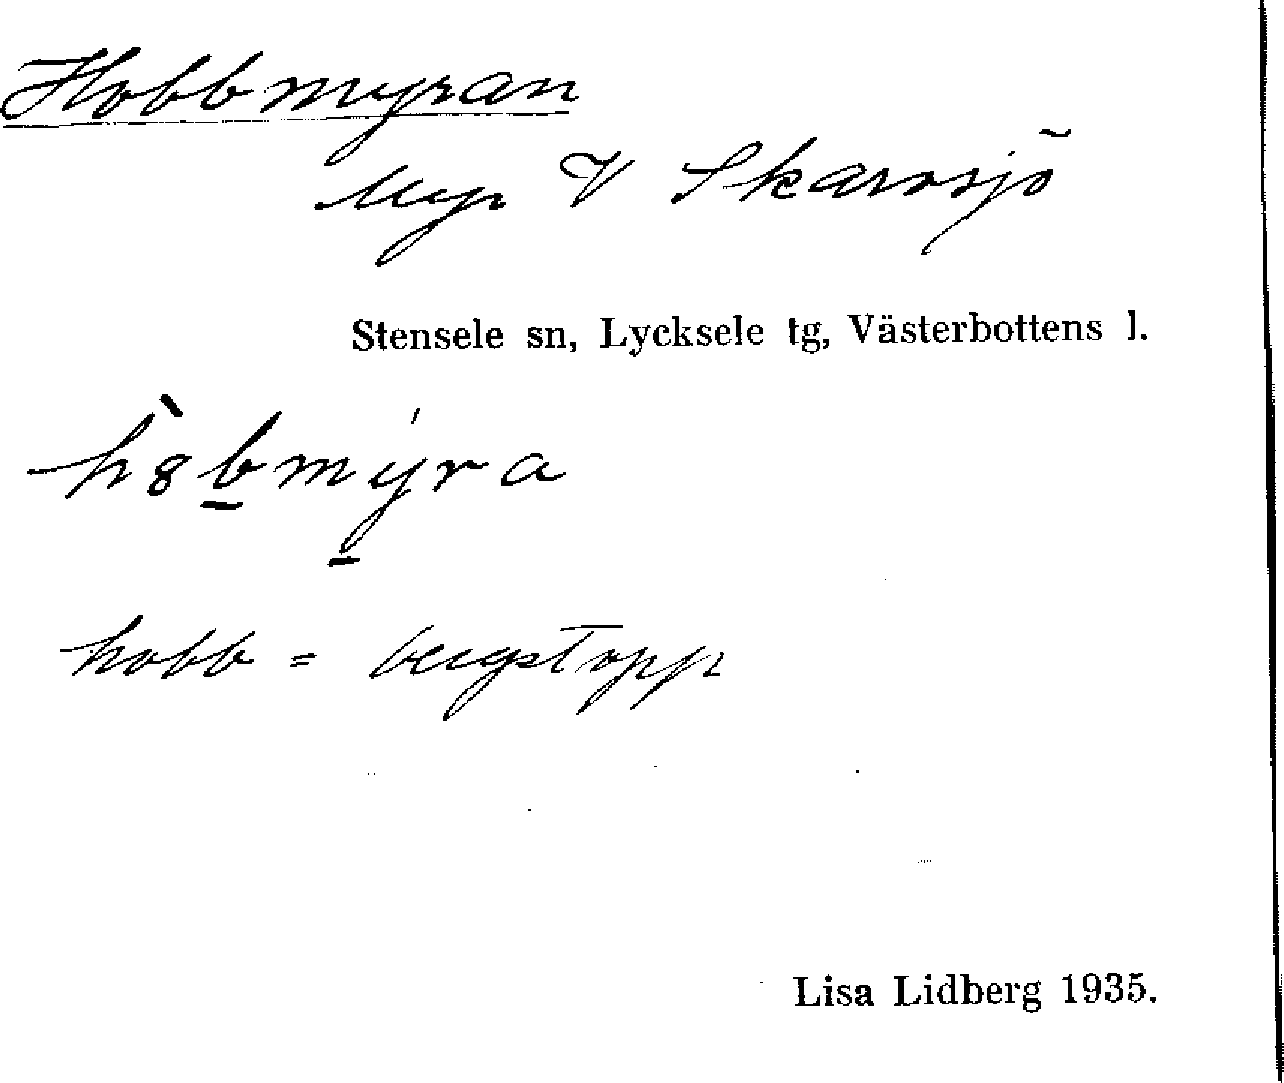 Hobbmyran
Myr V Skarvsjö
Stensele sn, Lycksele tg, Västerbottens l.
h8bmýra
hobb = bergstopp
Lisa Lidberg 1935.